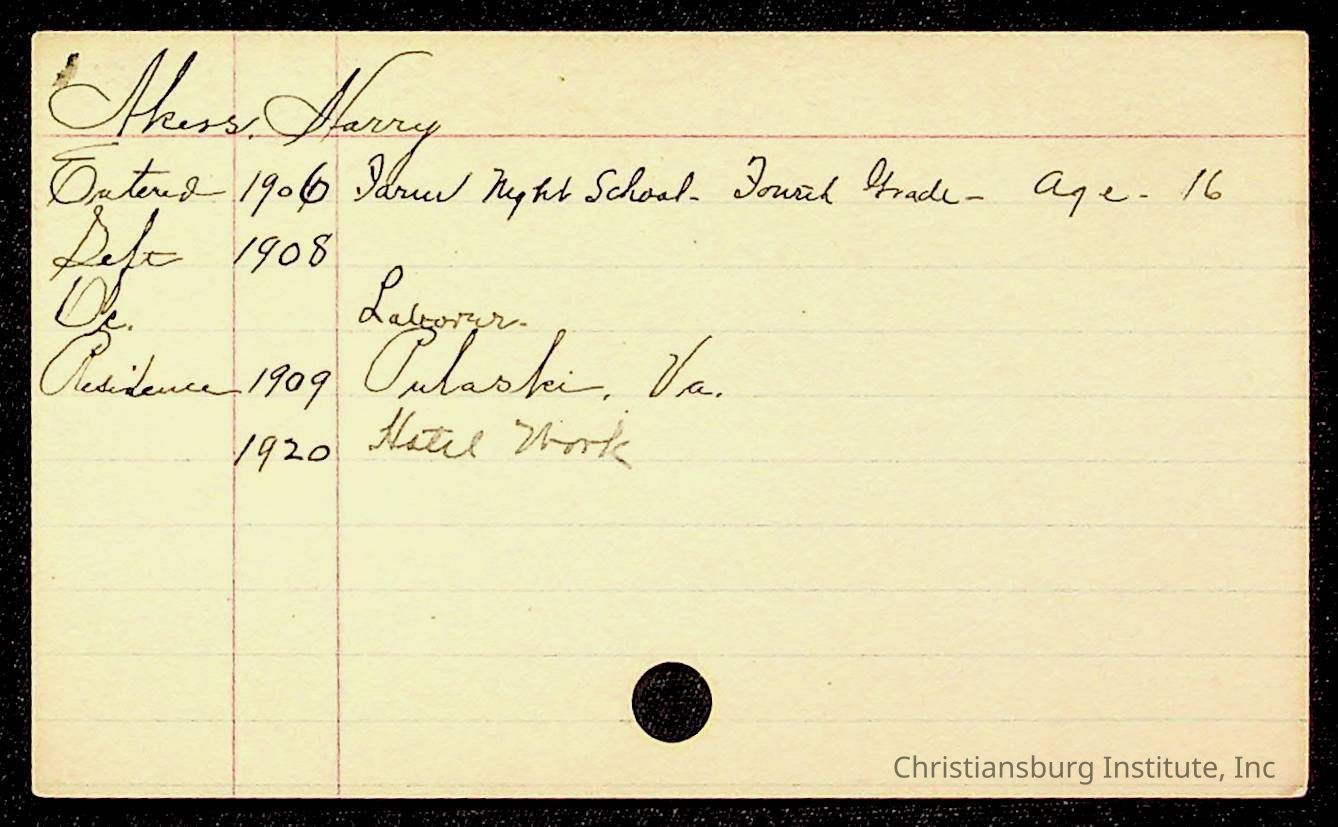 Akers, Harry
Entered 1906 Farm Night School - Fourth Grade - Age - 16
Left 1908
Oc. Laborer.
Residence 1909 Pulaski, Va.
1920 Hotel Work
Christiansburg Institute, Inc